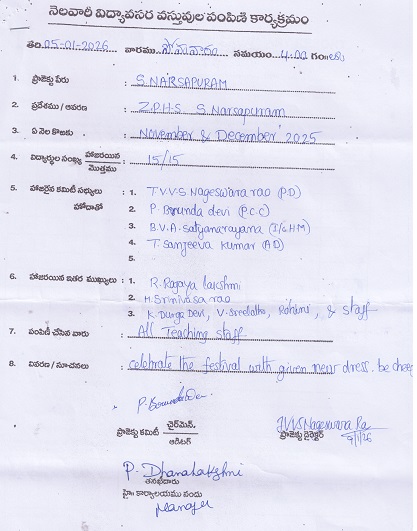 నెలవారీ విద్యావసర వస్తువుల పంపిణి కార్యక్రమం
తేది: 05-01-2026 వారము సోమవారం సమయం 4:00 గంటలకు
1. ప్రాజెక్టు పేరు : S.NARSAPURAM
2. ప్రదేశము / ఆవరణ : Z.P.H.S. S. Narsapuram
3. ఏ నెల కొఱకు : November & December' 2025
4. విద్యార్ధుల సంఖ్య హాజరయిన / మొత్తము : 15/15
5. హాజరైన కమిటీ సభ్యులు : 1. T.V.V.S Nageswara rao (P.D)
హోదాతో 2. P Brunda devi (P.C.C)
3. B.V.A. Satyanarayana (I/c HM)
4. T. Sanjeeva Kumar (A D)
5.
6. హాజరయిన ఇతర ముఖ్యులు : 1. R. Ragaya lakshmi
2. H. Srinivasa rao
3. K. Durga Devi, V. Sreelatha, Rohini, & staff
7. పంపిణీ చేసిన వారు : All Teaching staff.
8. వివరణ / సూచనలు : celebrate the festival with given new dress. be
P. Brunda Devi
TVVS Nageswara Ra
ప్రాజెక్టు కమిటీ చైర్‌మెన్, / ఆడిటర్
ప్రాజెక్టు డైరెక్టర్
P. Dhanalakshmi
తనఖీదారు
హై కార్యాలయము నందు
Manager